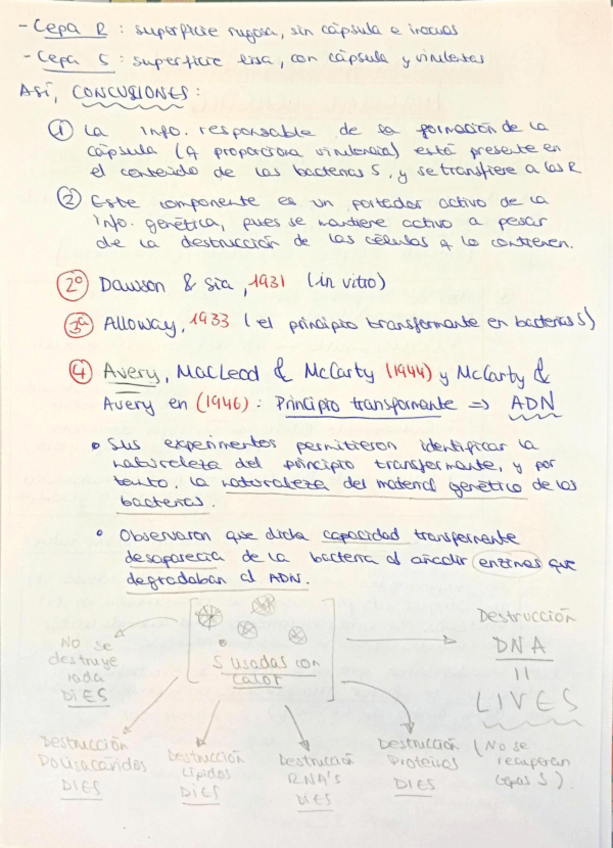 - Cepa R : superficie rugosa, sin cápsula e inocuas
- Cepa S : superficie lisa, con cápsula y virulentas
Así, CONCUSIONES :
① La info. responsable de la formación de la
cápsula (q proporciona virulencia) está presente en
el contenido de las bacterias S, y se transfiere a las R
② Este componente es un portador activo de la
info. genética, pues se mantiene activo a pesar
de la destrucción de las células q lo contienen.
2º Dawson & Sia, 1931 (in vitro)
3º Alloway, 1933 (el principio transformante en bacterias S)
④ Avery, MacLeod & McCarty (1944) y McCarty &
Avery en (1946) : Principio transformante => ADN
• Sus experimentos permitieron identificar la
naturaleza del principio transformante, y por
tanto, la naturaleza del material genético de las
bacterias.
• Observaron que dicha capacidad transformante
desaparecía de la bacteria al añadir enzimas que
degradaban el ADN.
S lisadas con
calor
No se
destruye
nada
DIES
Destrucción
Polisacáridos
DIES
Destrucción
Lípidos
DIES
Destrucción
RNA's
DIES
Destrucción
Proteínas
DIES
Destrucción
DNA
=
LIVES
(No se
recuperan
cepas S).